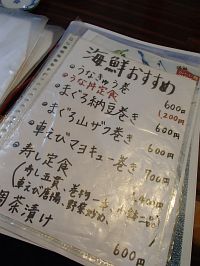 海鮮おすすめ
・うなきゅう巻 600円
・うな丼定食 1,200円
・まぐろ納豆巻き 600円
・まぐろ山ザク巻き 600円
・車えびマヨキュー巻き 700円
・寿し定食 1,400円
(にぎり五貫、巻物一本、小鉢一品)
茶漬け 600円